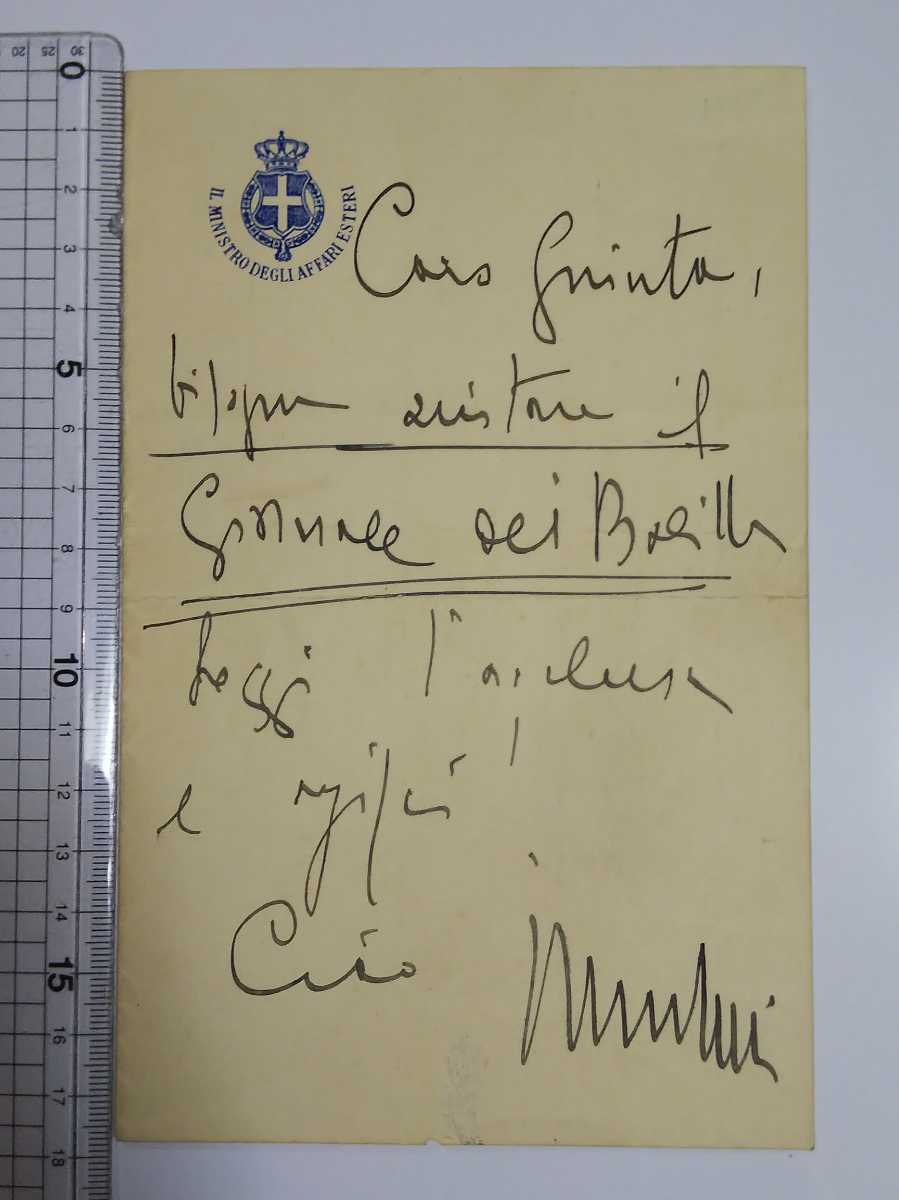 IL MINISTRO DEGLI AFFARI ESTERI
Caro Giunta,
bisogna aiutare il
Giornale dei Balilla
Leggi l'acclusa
e agisci!
Ciao Mussolini
20 25 30
0
1
2
3
4
5
6
7
8
9
10
11
12
13
14
15
16
17
18